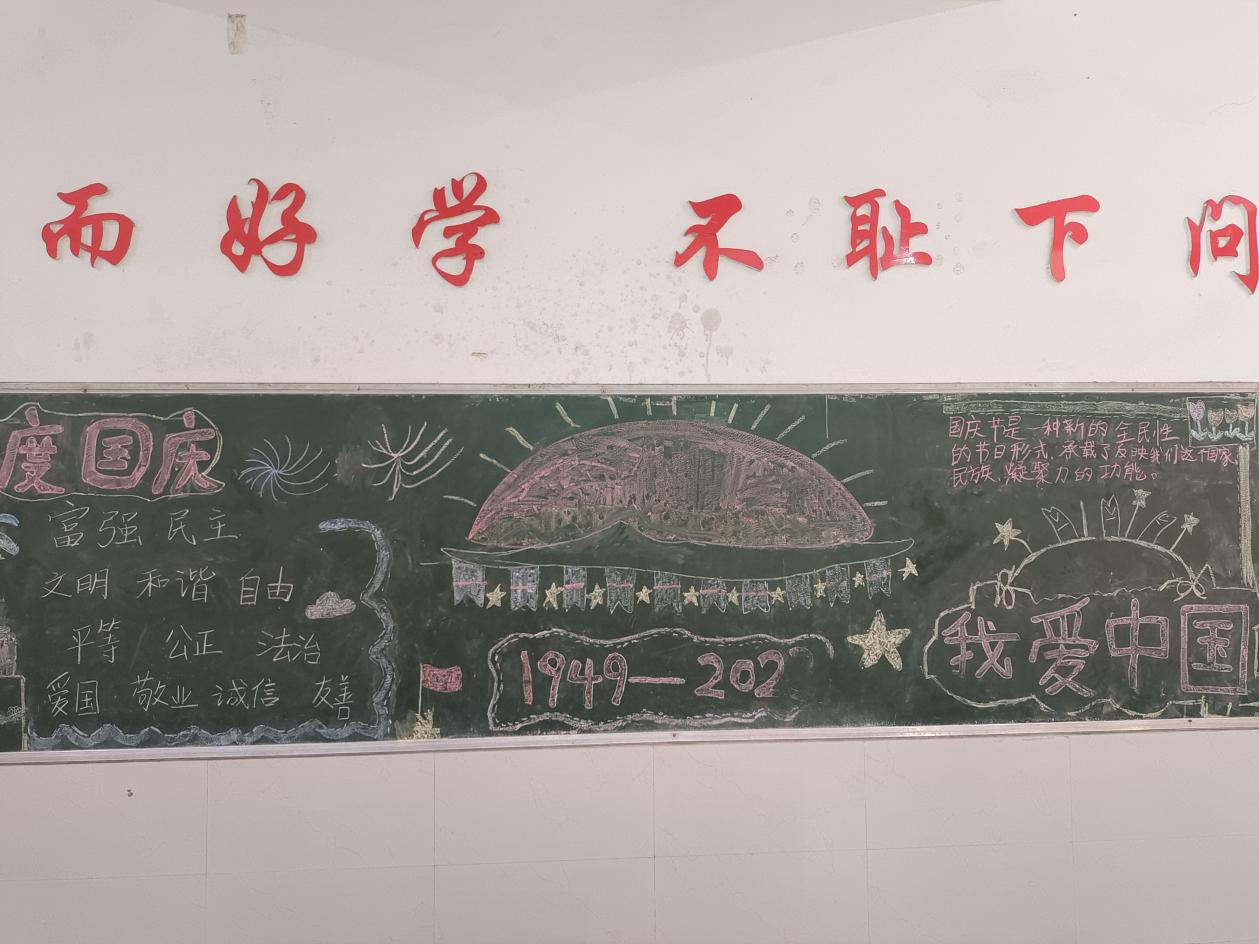 而好学 不耻下问
度国庆
富强 民主
文明 和谐 自由
平等 公正 法治
爱国 敬业 诚信 友善
1949—202
国庆节是一种新的全民性
的节日形式,承载了反映我们这个国家
民族,凝聚力的功能。
我爱中国